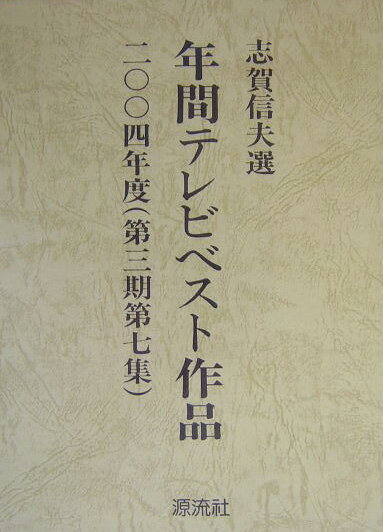 志賀信夫選
年間テレビベスト作品
二〇〇四年度(第三期第七集)
源流社